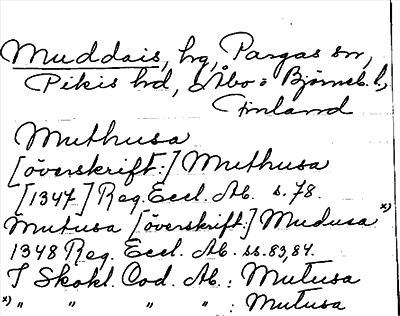 Muddais, hg, Pargas sn,
Pikis hd, Åbo o Björneb. l,
Finland
Muthusa
[överskrift:] Muthusa
[1347] Reg. Eccl. Ab. s. 78.
Mutusa [överskrift:] Mudusa x)
1348 Reg. Eccl. Ab. ss. 83, 84.
I Skokl. Cod. Ab.: Mutusa
x) " " " " : Mutusa